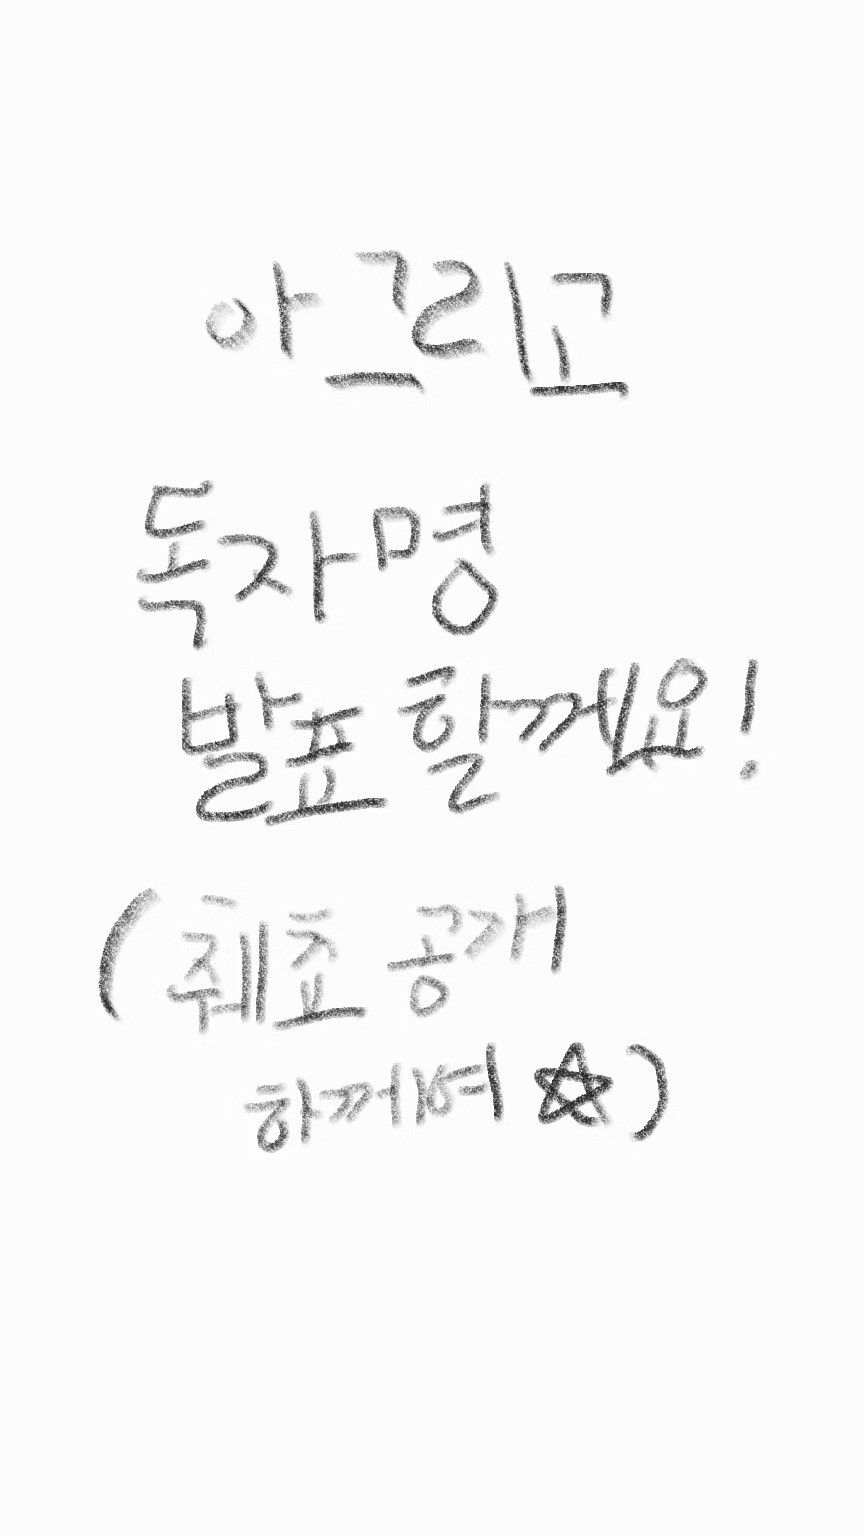 아 그리고
독자명
발표 할께요!
(췌쵸 공개
하께여 ☆)